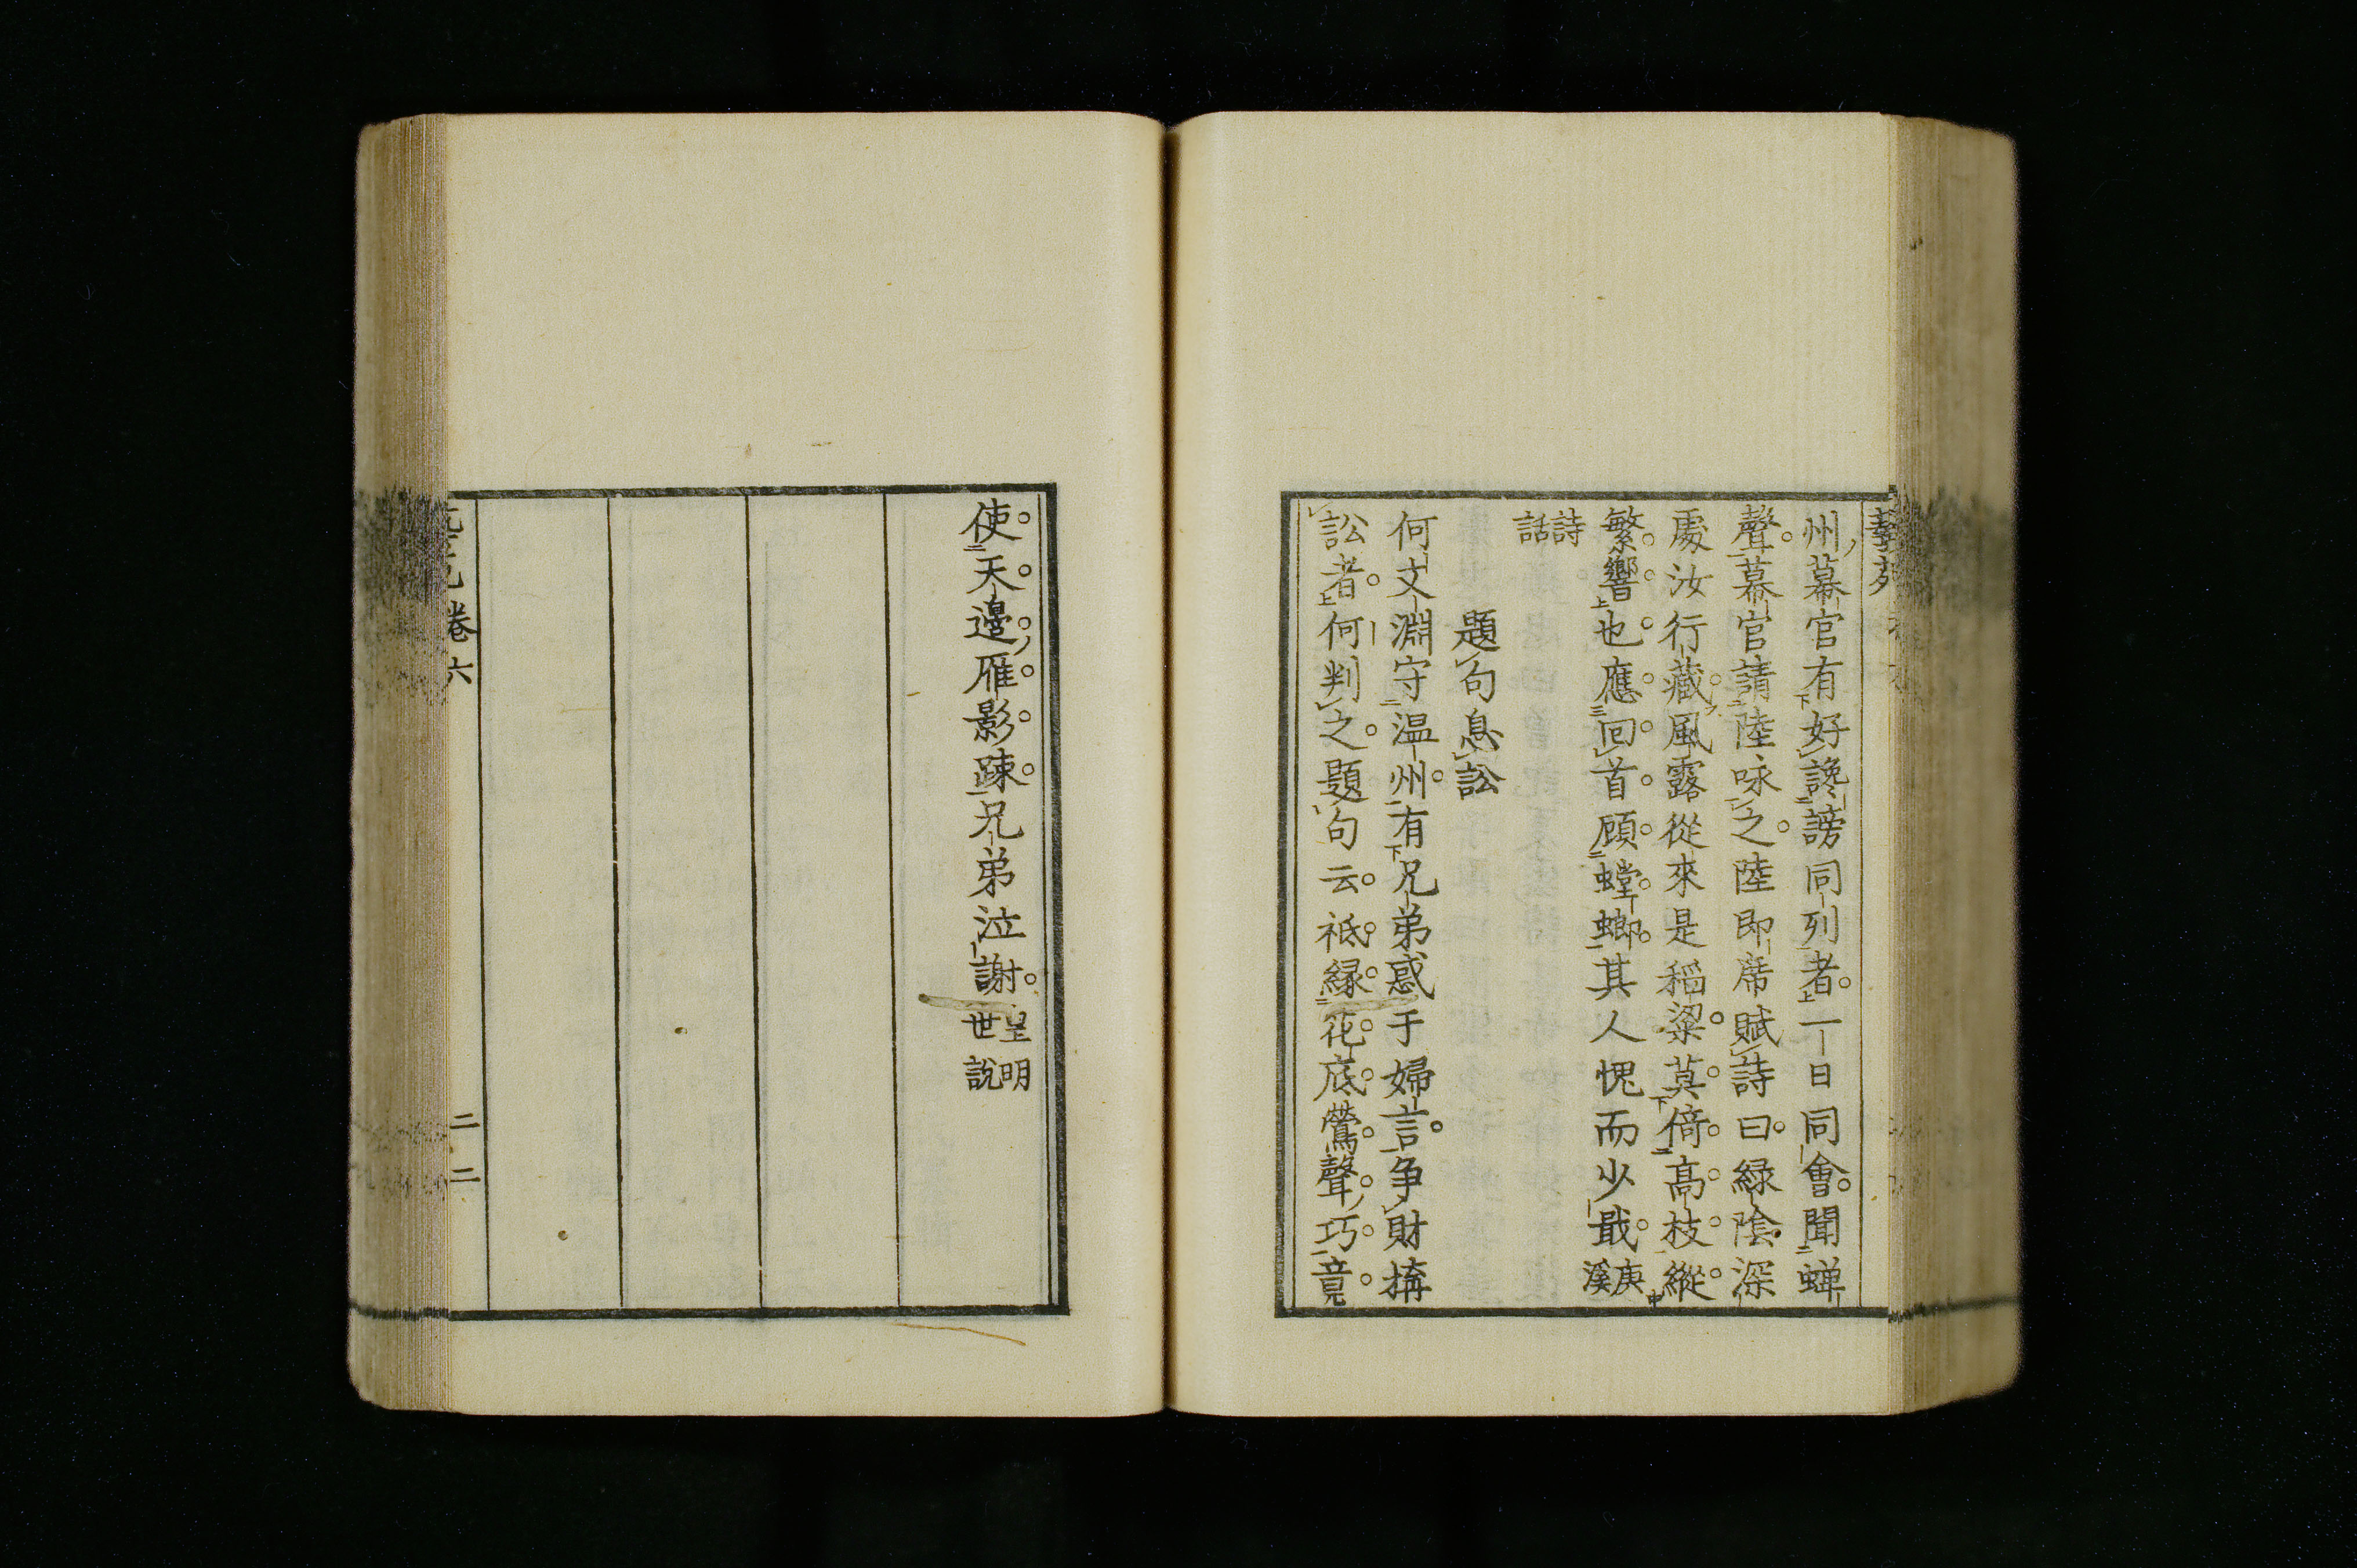 藝苑
州幕官有好讒謗同列者一日同會聞蟬
聲幕官請陸咏之陸即席賦詩曰綠陰深
處汝行藏風露從來是稻粱莫倚高枝縱
繁響也應回首顧螳螂其人愧而少戢庚溪
詩話
題句息訟
何文淵守温州有兄弟惑于婦言争財搆
訟者何判之題句云祗緣花底鶯聲巧竟
使天邊雁影踈兄弟泣謝皇明世說
卷六
二二